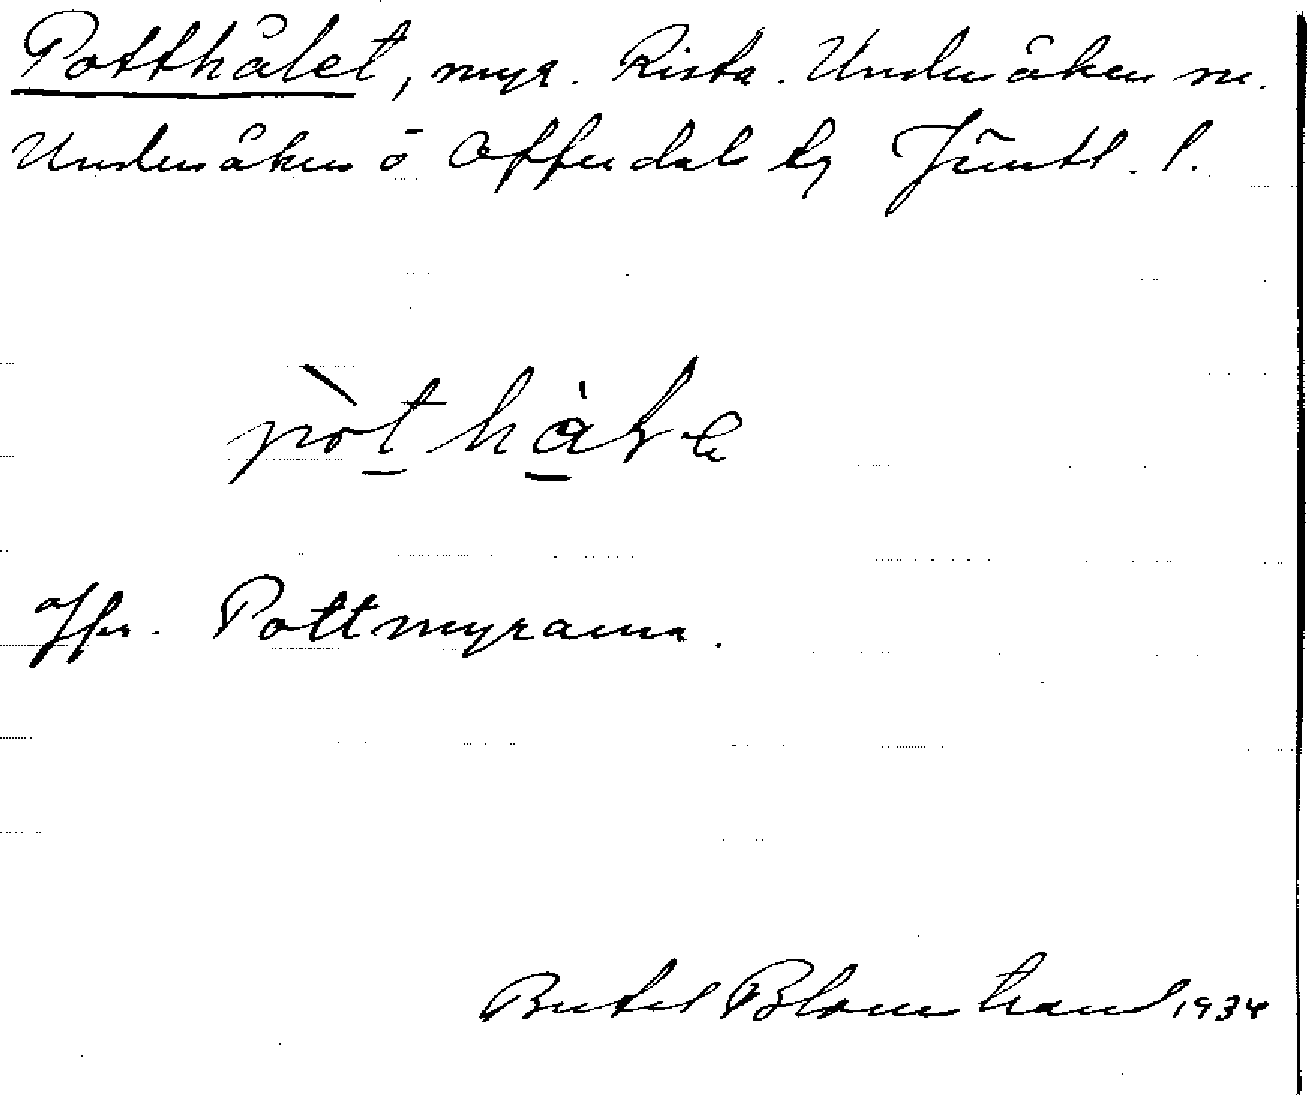 Potthålet, myr. Rista. Undersåkers sn.
Undersåkers o Offerdals tg Jämtl. l.
pòt hå̀łe
Jfr. Pottmyrarna.
Bertel Blomstrand 1934